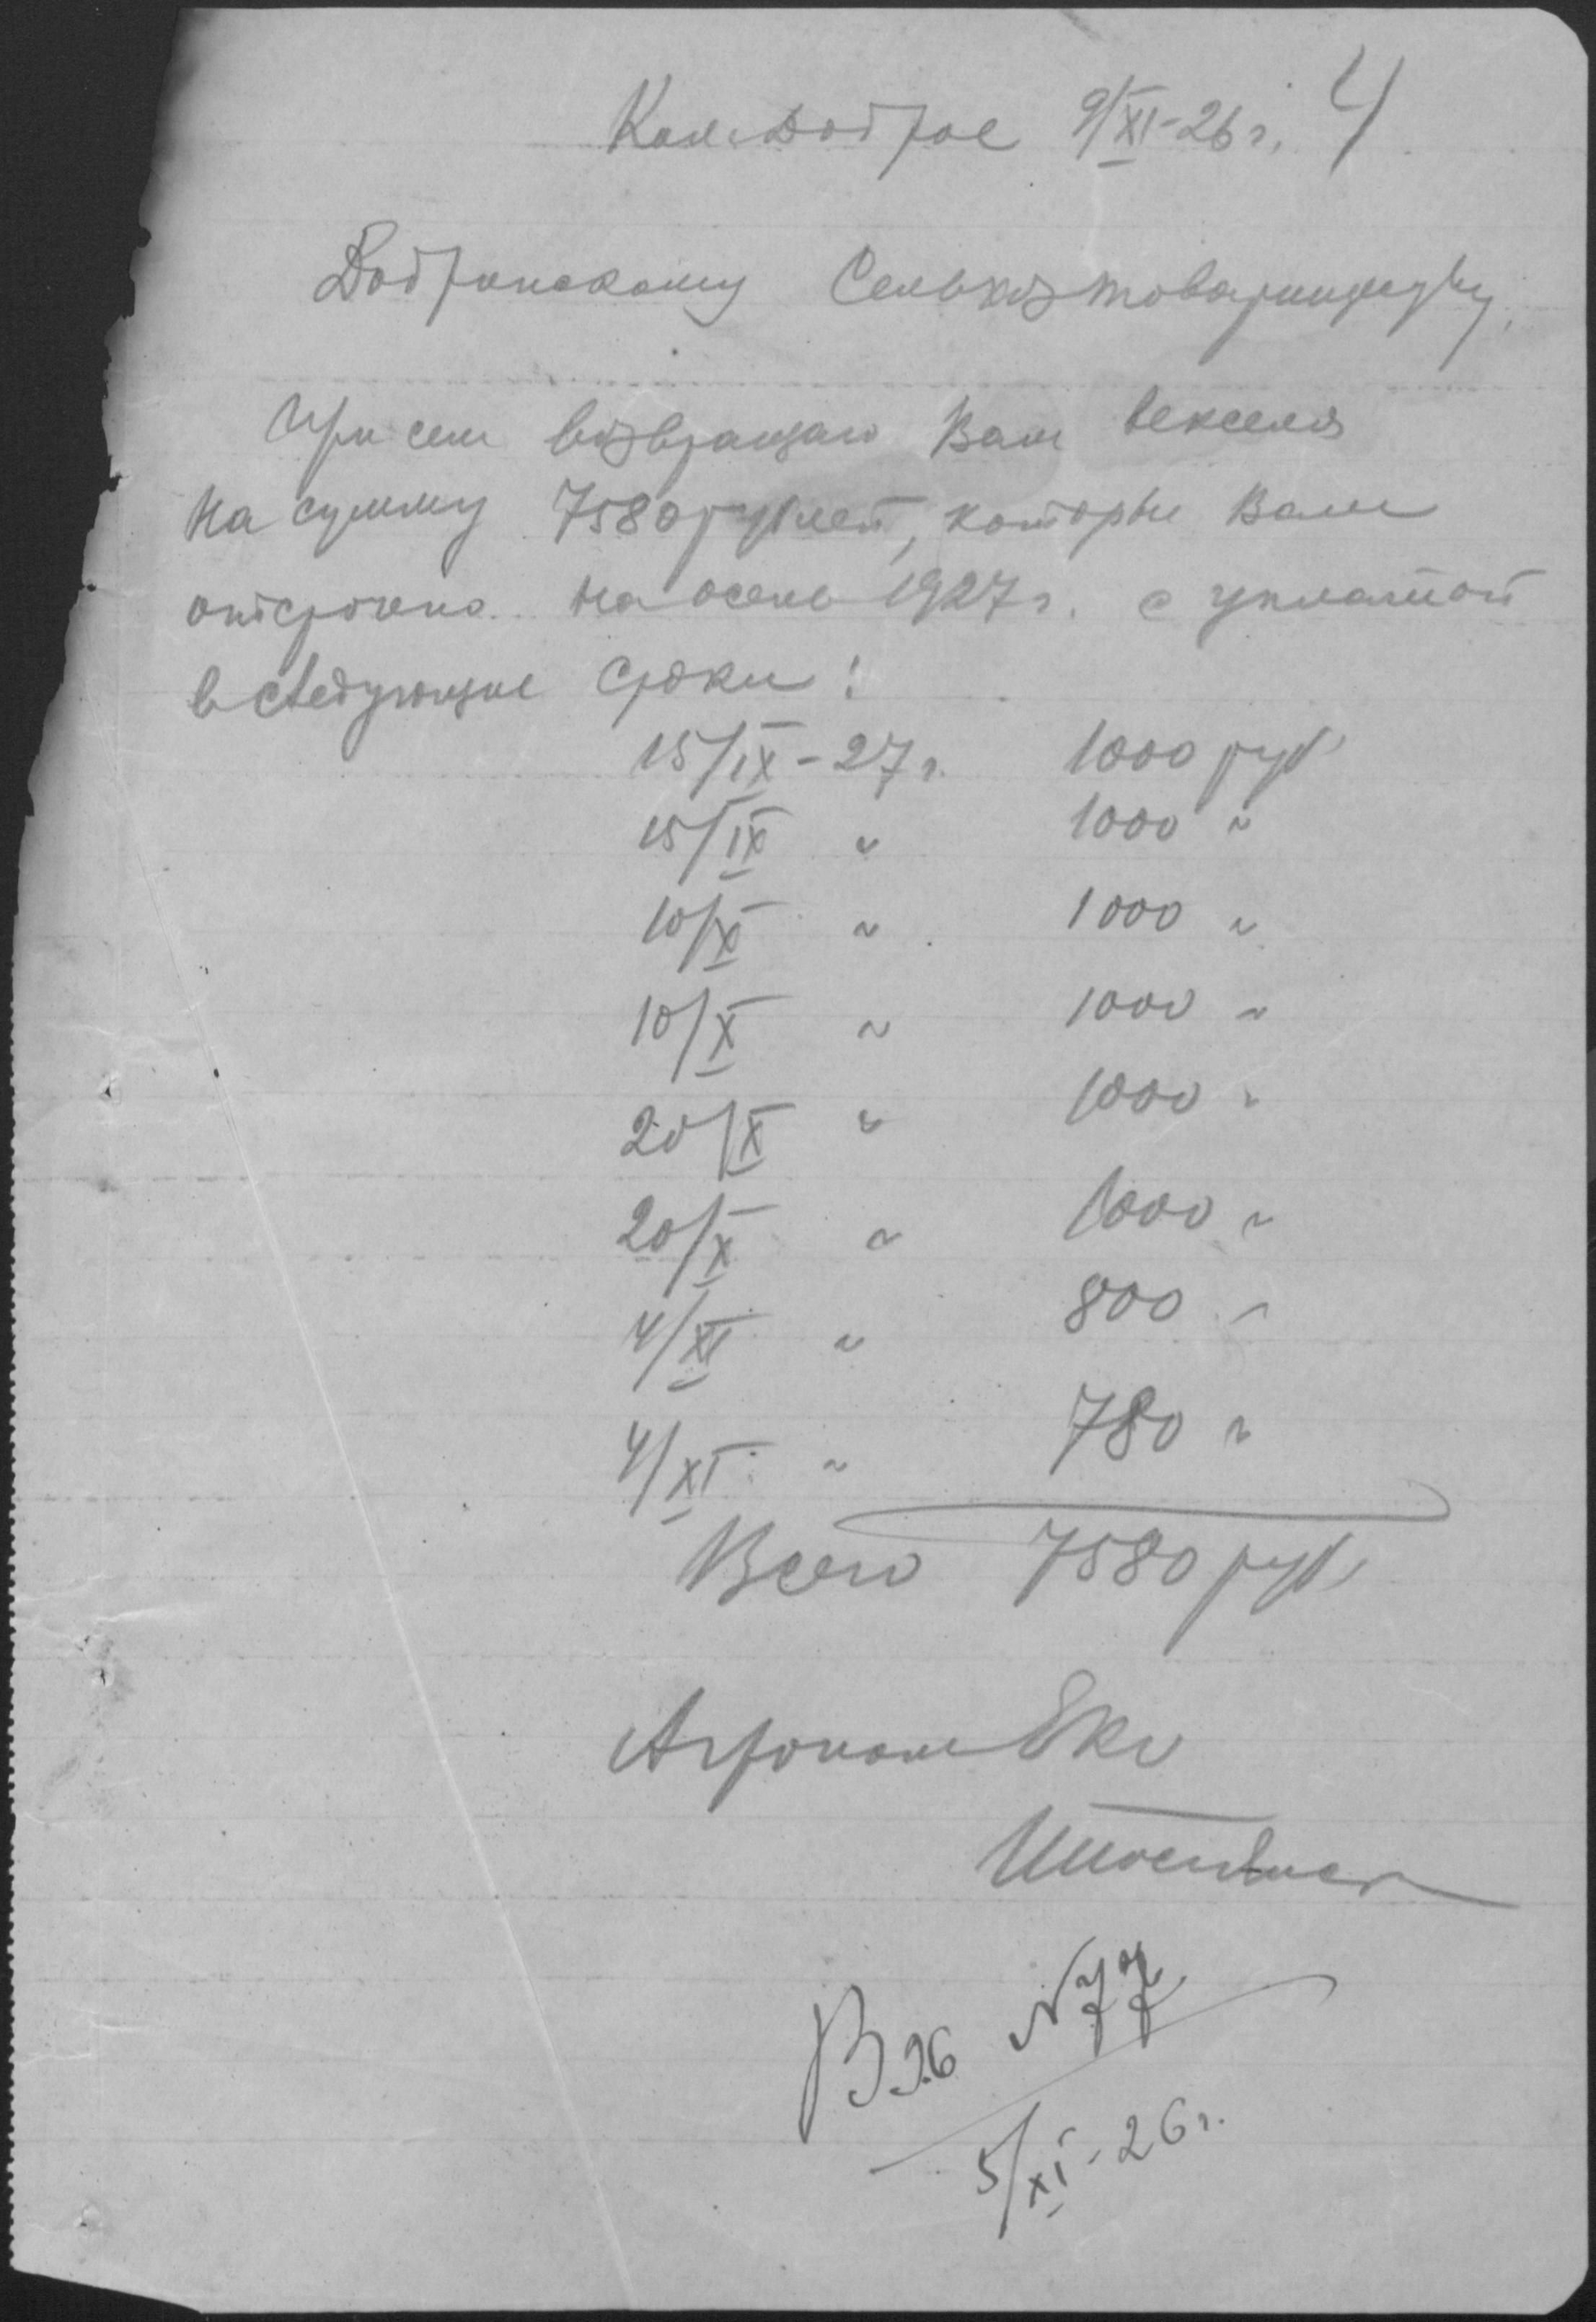 Кол. Доброе 9/XI-26 г. 4
Добринскому Сельхозтовариществу,
При сем возвращаю Вам векселя
на сумму 7580 рублей, которые Вам
отсрочено на осень 1927 г. с уплатой
в следующие сроки:
15/IX-27 г. 1000 руб
15/IX " 1000 "
10/X " 1000 "
10/X " 1000 "
20/X " 1000 "
20/X " 1000 "
4/XI " 800 "
4/XI " 780 "
Всего 7580 руб
Агроном ЕКО
Вх N77
5/XI-26 г.